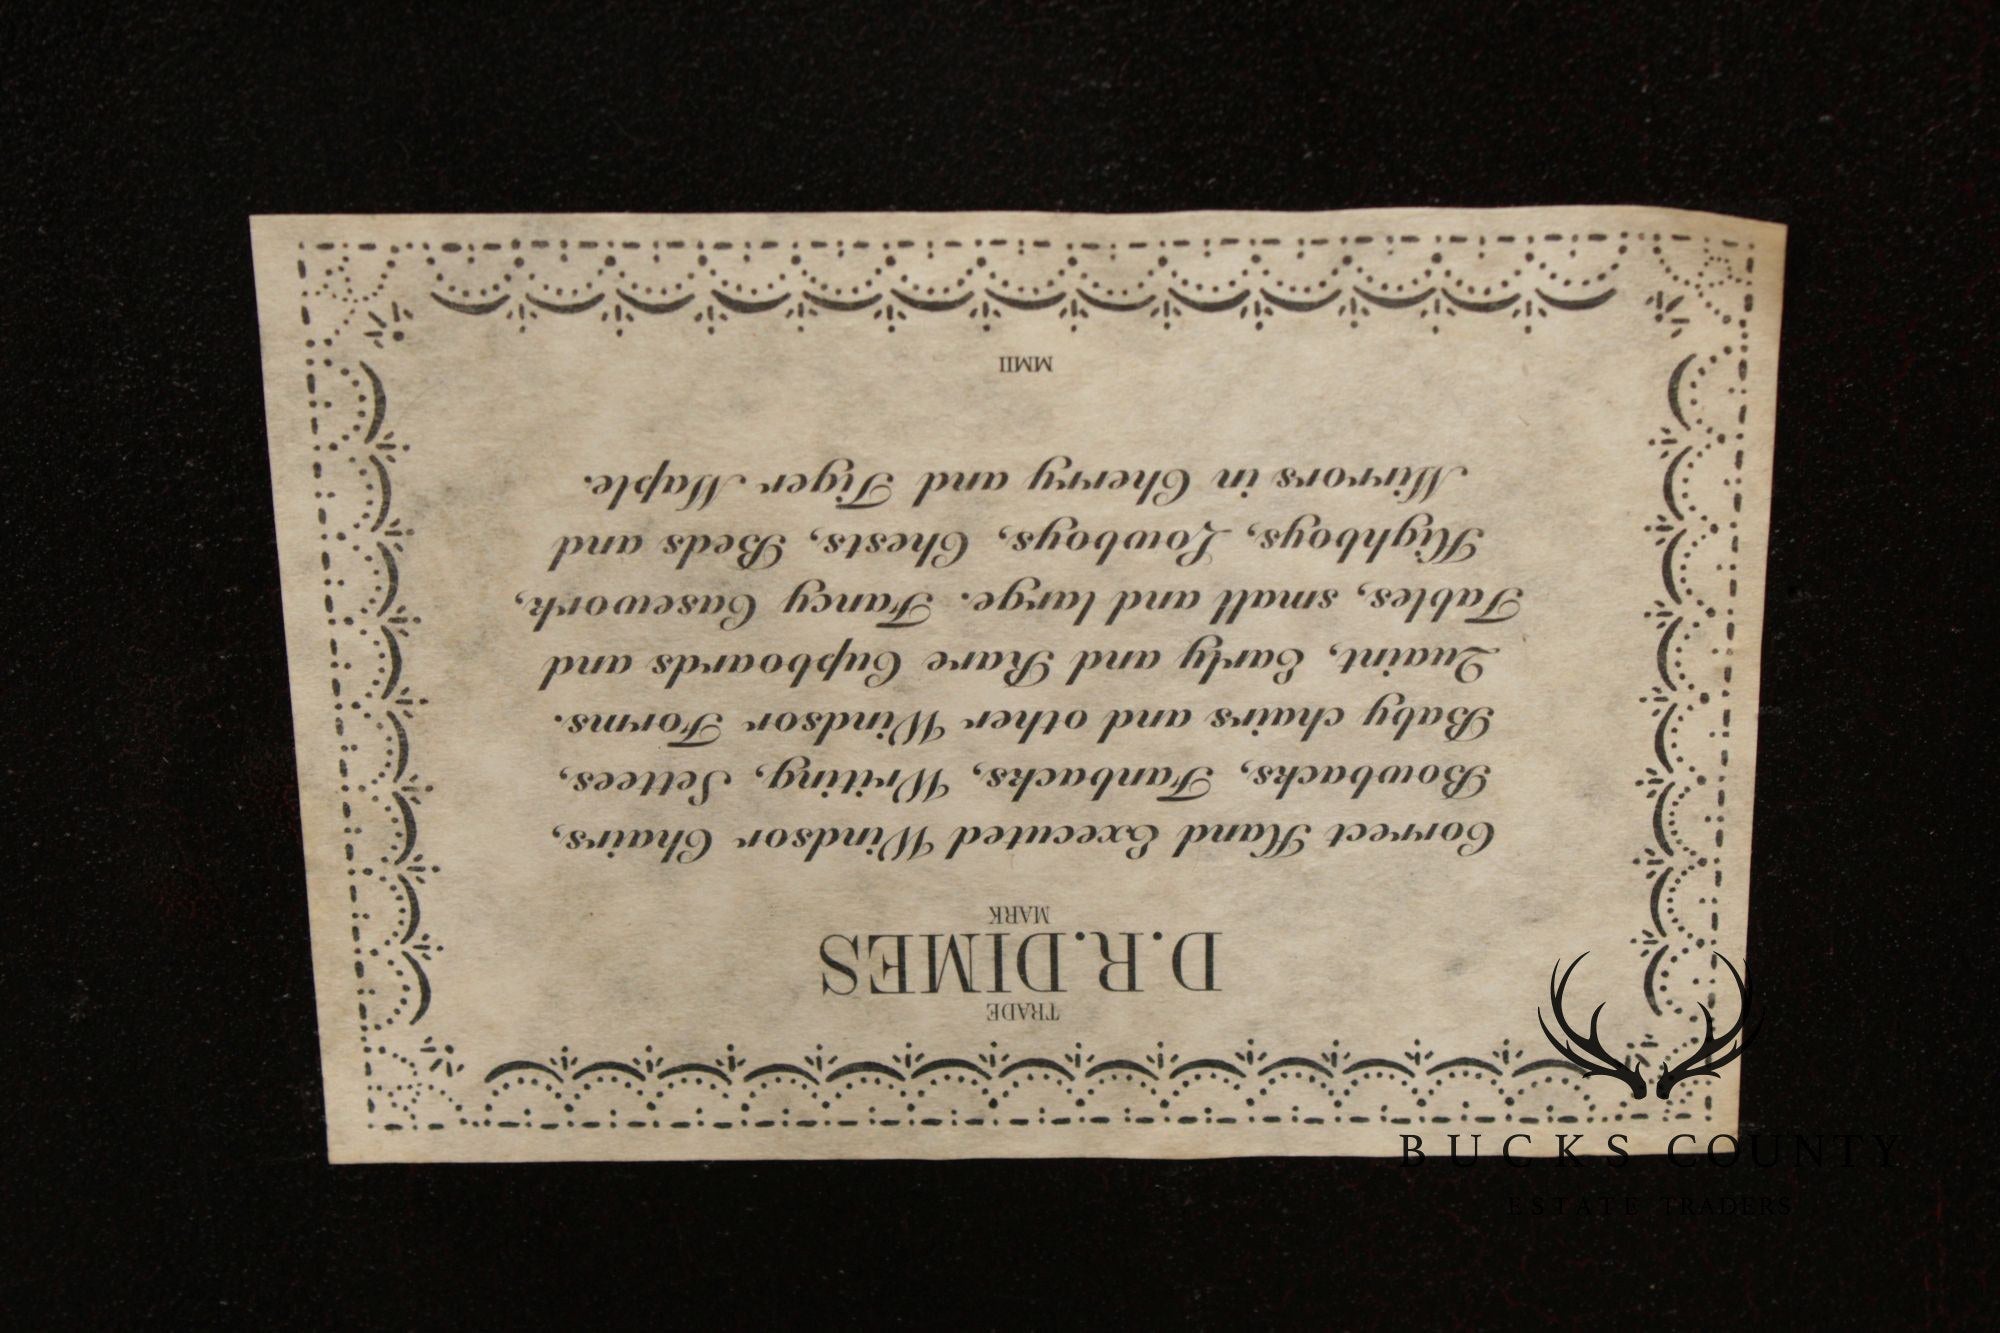 TRADE
D.R.DIMES
MARK
Correct Hand Executed Windsor Chairs,
Bowbacks, Fanbacks, Writing, Settees,
Baby chairs and other Windsor Forms.
Quaint, Early and Rare Cupboards and
Tables, small and large. Fancy Casework,
Highboys, Lowboys, Chests, Beds and
Mirrors in Cherry and Tiger Maple.
MMII
BUCKS COUNTY
ESTATE TRADERS